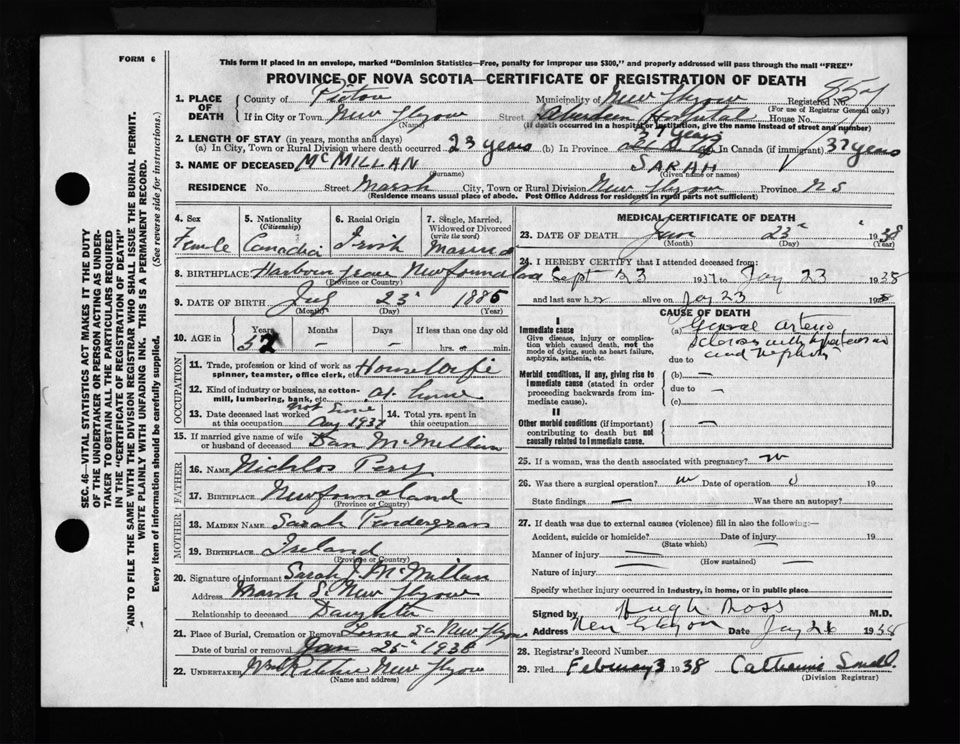 FORM 6
This form if placed in an envelope, marked "Dominion Statistics—Free, penalty for improper use $300," and properly addressed will pass through the mail "FREE"
PROVINCE OF NOVA SCOTIA—CERTIFICATE OF REGISTRATION OF DEATH
SEC. 46—VITAL STATISTICS ACT MAKES IT THE DUTY
OF THE UNDERTAKER OR PERSON ACTING AS UNDER-
TAKER TO OBTAIN ALL THE PARTICULARS REQUIRED
IN THE "CERTIFICATE OF REGISTRATION OF DEATH"
AND TO FILE THE SAME WITH THE DIVISION REGISTRAR WHO SHALL ISSUE THE BURIAL PERMIT.
WRITE PLAINLY WITH UNFADING INK. THIS IS A PERMANENT RECORD.
Every item of information should be carefully supplied. (See reverse side for instructions.)
1. PLACE OF DEATH County of Pictou Municipality of New Glasgow Registered No.
(For use of Registrar General only)
If in City or Town New Glasgow Street Aberdeen Hospital House No.
(Name) (If death occurred in a hospital or institution, give the name instead of street and number)
2. LENGTH OF STAY (in years, months and days) 37 years
(a) In City, Town or Rural Division where death occurred 23 years (b) In Province (c) In Canada (if immigrant) 37 years
3. NAME OF DECEASED MCMILLAN SARAH
(Surname) (Given name or names)
RESIDENCE No. Street Marsh City, Town or Rural Division New Glasgow Province N S
(Residence means usual place of abode. Post Office Address for residents in rural parts not sufficient)
4. Sex Female
5. Nationality (Citizenship) Canadian
6. Racial Origin Irish
7. Single, Married, Widowed or Divorced (write the word) Married
8. BIRTHPLACE Harbour Grace Newfoundland
(Province or Country)
9. DATE OF BIRTH 23 1885
(Month) (Day) (Year)
10. AGE in Years 52 Months – Days – If less than one day old hrs. or min.
OCCUPATION
11. Trade, profession or kind of work as spinner, teamster, office clerk, etc. Housewife
12. Kind of industry or business, as cotton-mill, lumbering, bank, etc. at home
13. Date deceased last worked at this occupation not since Aug 1937
14. Total yrs. spent in this occupation
15. If married give name of wife or husband of deceased Dan McMillan
FATHER
16. NAME Nicklos
17. BIRTHPLACE Newfoundland
(Province or Country)
MOTHER
18. MAIDEN NAME Sarah Prendergras
19. BIRTHPLACE Ireland
(Province or Country)
20. Signature of informant Sarah J. McMillan
Address Marsh St New Glasgow
Relationship to deceased Daughter
21. Place of Burial, Cremation or Removal New Glasgow
Date of burial or removal Jan 25 1938
22. UNDERTAKER New Glasgow
(Name and address)
MEDICAL CERTIFICATE OF DEATH
23. DATE OF DEATH Jan 23 1938
(Month) (Day) (Year)
24. I HEREBY CERTIFY that I attended deceased from:
Sept 23 1937 to Jay 23 1938
and last saw her alive on Jay 23 193
CAUSE OF DEATH
I
Immediate cause
Give disease, injury or complication which caused death, not the mode of dying, such as heart failure, asphyxia, asthenia, etc.
(a) General Arterio
Sclerosis with
due to and Nephritis
Morbid conditions, if any, giving rise to immediate cause (stated in order proceeding backwards from immediate cause).
(b) –
due to –
(c)
II
Other morbid conditions (if important) contributing to death but not causally related to immediate cause. –
25. If a woman, was the death associated with pregnancy? no
26. Was there a surgical operation? no Date of operation 19
State findings – Was there an autopsy?
27. If death was due to external causes (violence) fill in also the following:—
Accident, suicide or homicide? Date of injury 19
(State which)
Manner of injury
(How sustained)
Nature of injury
Specify whether injury occurred in Industry, in home, or in public place
Signed by Hugh Ross M.D.
Address New Glasgow Date Jay 26 1938
28. Registrar's Record Number
29. Filed February 3 1938 Catherine Small
(Division Registrar)